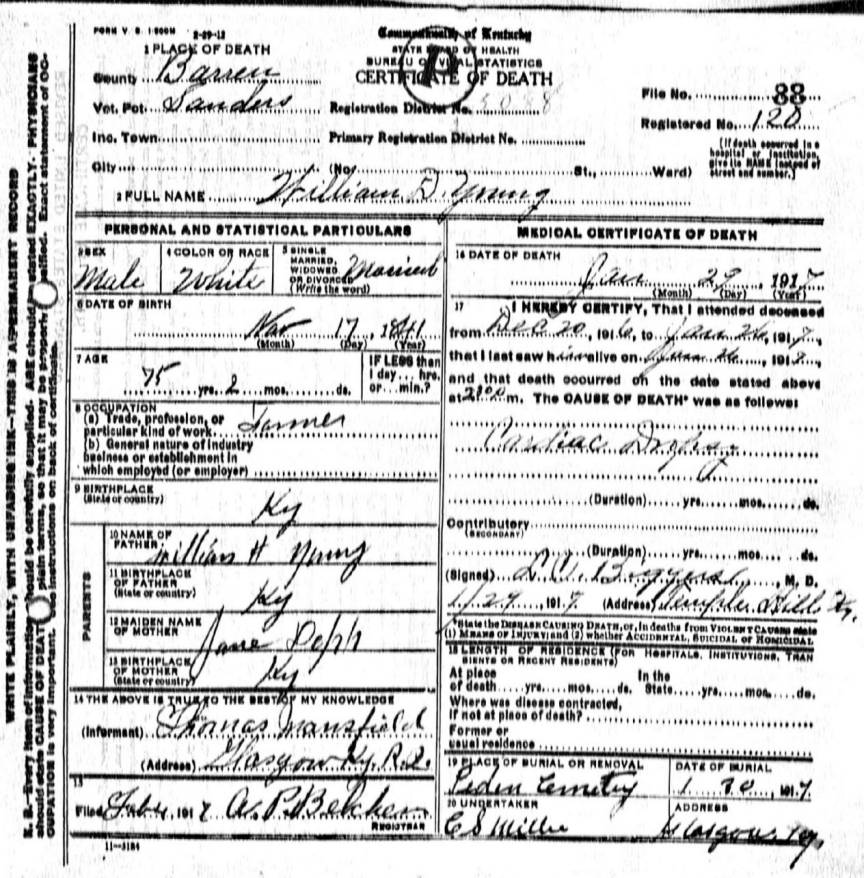 FORM V. S. 1-500M 2-29-12
Commonwealth of Kentucky
STATE BOARD OF HEALTH
BUREAU OF VITAL STATISTICS
CERTIFICATE OF DEATH
1 PLACE OF DEATH
County Barren
Vot. Pct. Sanders
Inc. Town
City (No. St., Ward)
Registration District No.
Primary Registration District No.
File No. 88
Registered No. 120
(If death occurred in a
hospital or institution,
give its NAME instead of
street and number.)
2 FULL NAME William D. Young
PERSONAL AND STATISTICAL PARTICULARS
3 SEX
Male
4 COLOR OR RACE
White
5 SINGLE
MARRIED,
WIDOWED
OR DIVORCED
(Write the word)
Married
6 DATE OF BIRTH
Nov 17, 1841
(Month) (Day) (Year)
7 AGE
75 yrs. 2 mos. ds.
IF LESS than
1 day ... hrs.
or ... min.?
8 OCCUPATION
(a) Trade, profession, or
particular kind of work Farmer
(b) General nature of industry
business or establishment in
which employed (or employer)
9 BIRTHPLACE
(State or country)
Ky
PARENTS
10 NAME OF
FATHER William H Young
11 BIRTHPLACE
OF FATHER
(State or country)
Ky
12 MAIDEN NAME
OF MOTHER
Jane
13 BIRTHPLACE
OF MOTHER
(State or country)
Ky
14 THE ABOVE IS TRUE TO THE BEST OF MY KNOWLEDGE
(Informant) Thomas Mansfield
(Address) Glasgow Ky. R.
15
Filed Feb 4, 1917
REGISTRAR
11-3184
MEDICAL CERTIFICATE OF DEATH
16 DATE OF DEATH
Jan 29, 1917
(Month) (Day) (Year)
17 I HEREBY CERTIFY, That I attended deceased
from Dec 20, 1916, to Jan 26, 1917,
that I last saw him alive on Jan 26, 1917,
and that death occurred on the date stated above
at m. The CAUSE OF DEATH* was as follows:
Cardiac Dropsy
(Duration) yrs. mos. ds.
Contributory
(SECONDARY)
(Duration) yrs. mos. ds.
(Signed) M. D.
1/29, 1917 (Address) Temple Hill Ky.
*State the DISEASE CAUSING DEATH, or, in deaths from VIOLENT CAUSES state
(1) MEANS OF INJURY; and (2) whether ACCIDENTAL, SUICIDAL or HOMICIDAL
18 LENGTH OF RESIDENCE (FOR HOSPITALS, INSTITUTIONS, TRAN
SIENTS OR RECENT RESIDENTS)
At place of death yrs. mos. ds. In the State yrs. mos. ds.
Where was disease contracted,
if not at place of death?
Former or
usual residence
19 PLACE OF BURIAL OR REMOVAL
Peden Cemetery
DATE OF BURIAL
1 30, 1917
20 UNDERTAKER
C S Miller
ADDRESS
Glasgow Ky
WRITE PLAINLY, WITH UNFADING INK—THIS IS A PERMANENT RECORD
N. B.—Every item of information should be carefully supplied. AGE should be stated EXACTLY. PHYSICIANS
should state CAUSE OF DEATH in plain terms, so that it may be properly classified. Exact statement of OC-
CUPATION is very important. See instructions on back of certificate.